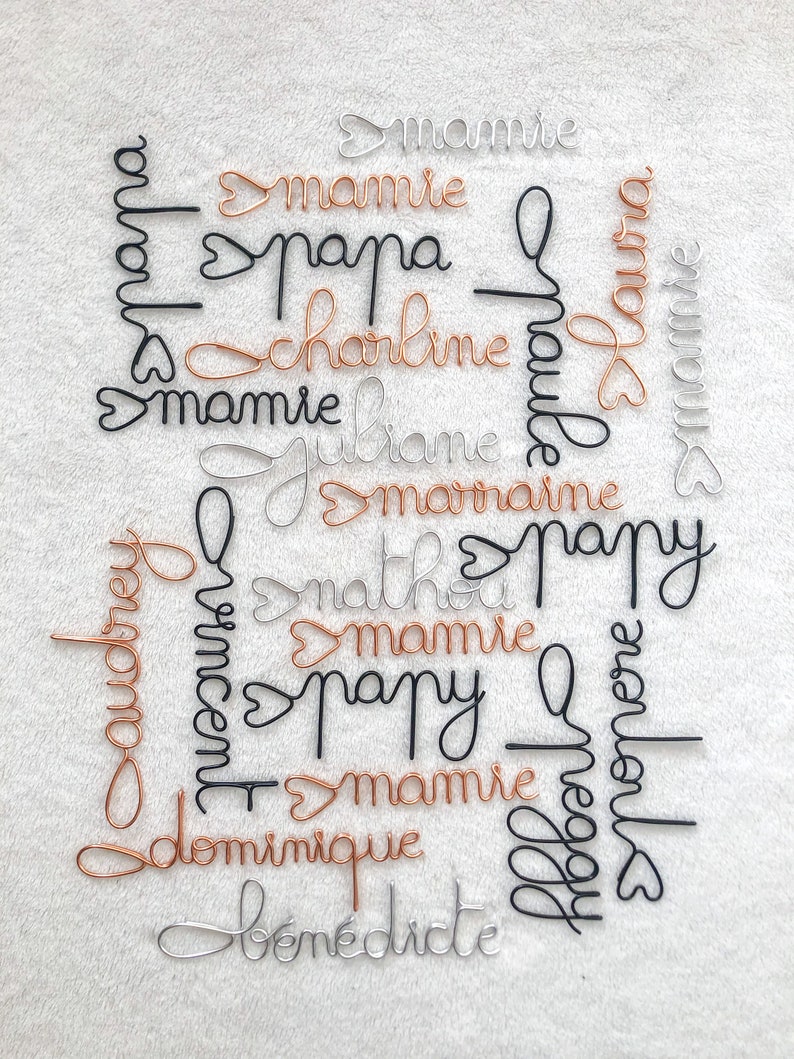 mamie
mamie
papa
papa
laura
paule
mamie
charline
mamie
juliane
marraine
papy
vincent
audrey
nathou
mamie
papy
peggy
mamie
dominique
bénédicte